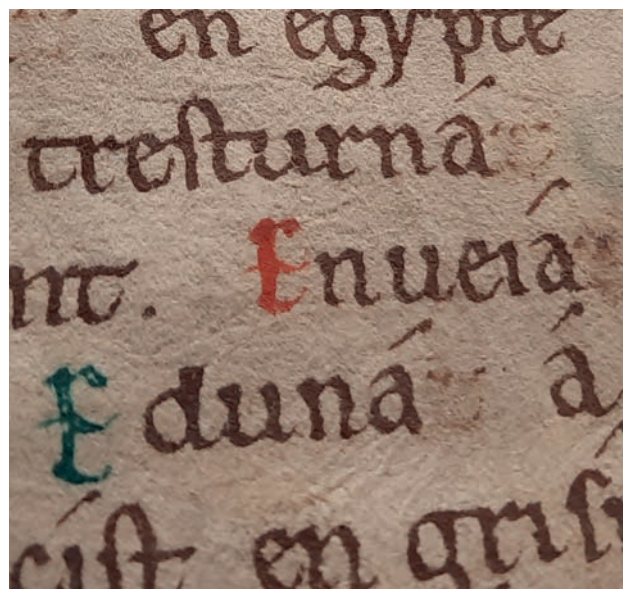 en egypte
tresturná
nt. Enueiá
E duná á
cist en grisi